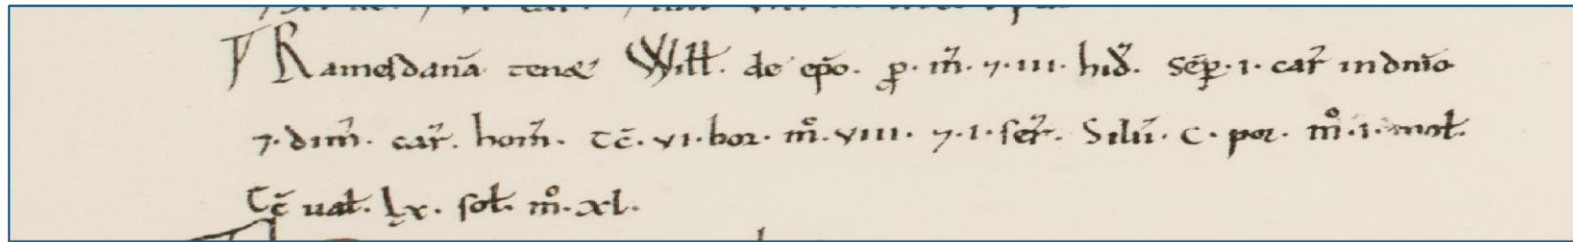 Ramesdanā tenet Witł. de ep̄o. ꝓ. m̃. ⁊. III. hiđ. Sēp̱. I. car̃ in dñio
⁊. dim̃. car̃. hom̃. Tc̄. VI. bor. m̊. VIII. ⁊. I. ser̃. Silũ. C. por. m̊. I. mol̃.
Tc̄ ual̃. lx. sol̃. m̊. xl.